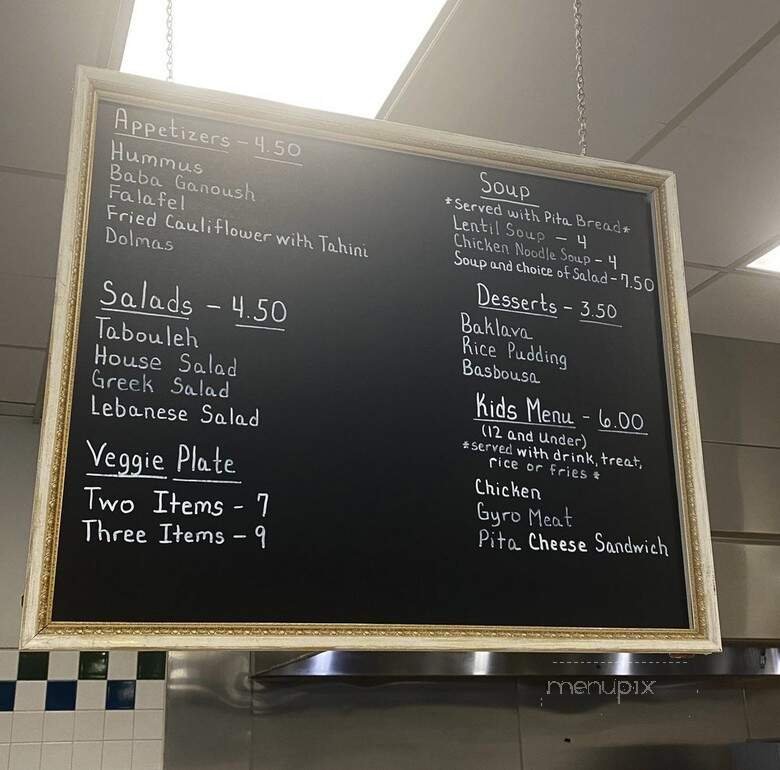 Appetizers - 4.50
Hummus
Baba Ganoush
Falafel
Fried Cauliflower with Tahini
Dolmas
Salads - 4.50
Tabouleh
House Salad
Greek Salad
Lebanese Salad
Veggie Plate
Two Items - 7
Three Items - 9
Soup
*Served with Pita Bread*
Lentil Soup - 4
Chicken Noodle Soup - 4
Soup and choice of Salad - 7.50
Desserts - 3.50
Baklava
Rice Pudding
Basbousa
Kids Menu - 6.00
(12 and under)
*served with drink, treat,
rice or fries *
Chicken
Gyro Meat
Pita Cheese Sandwich
menupix